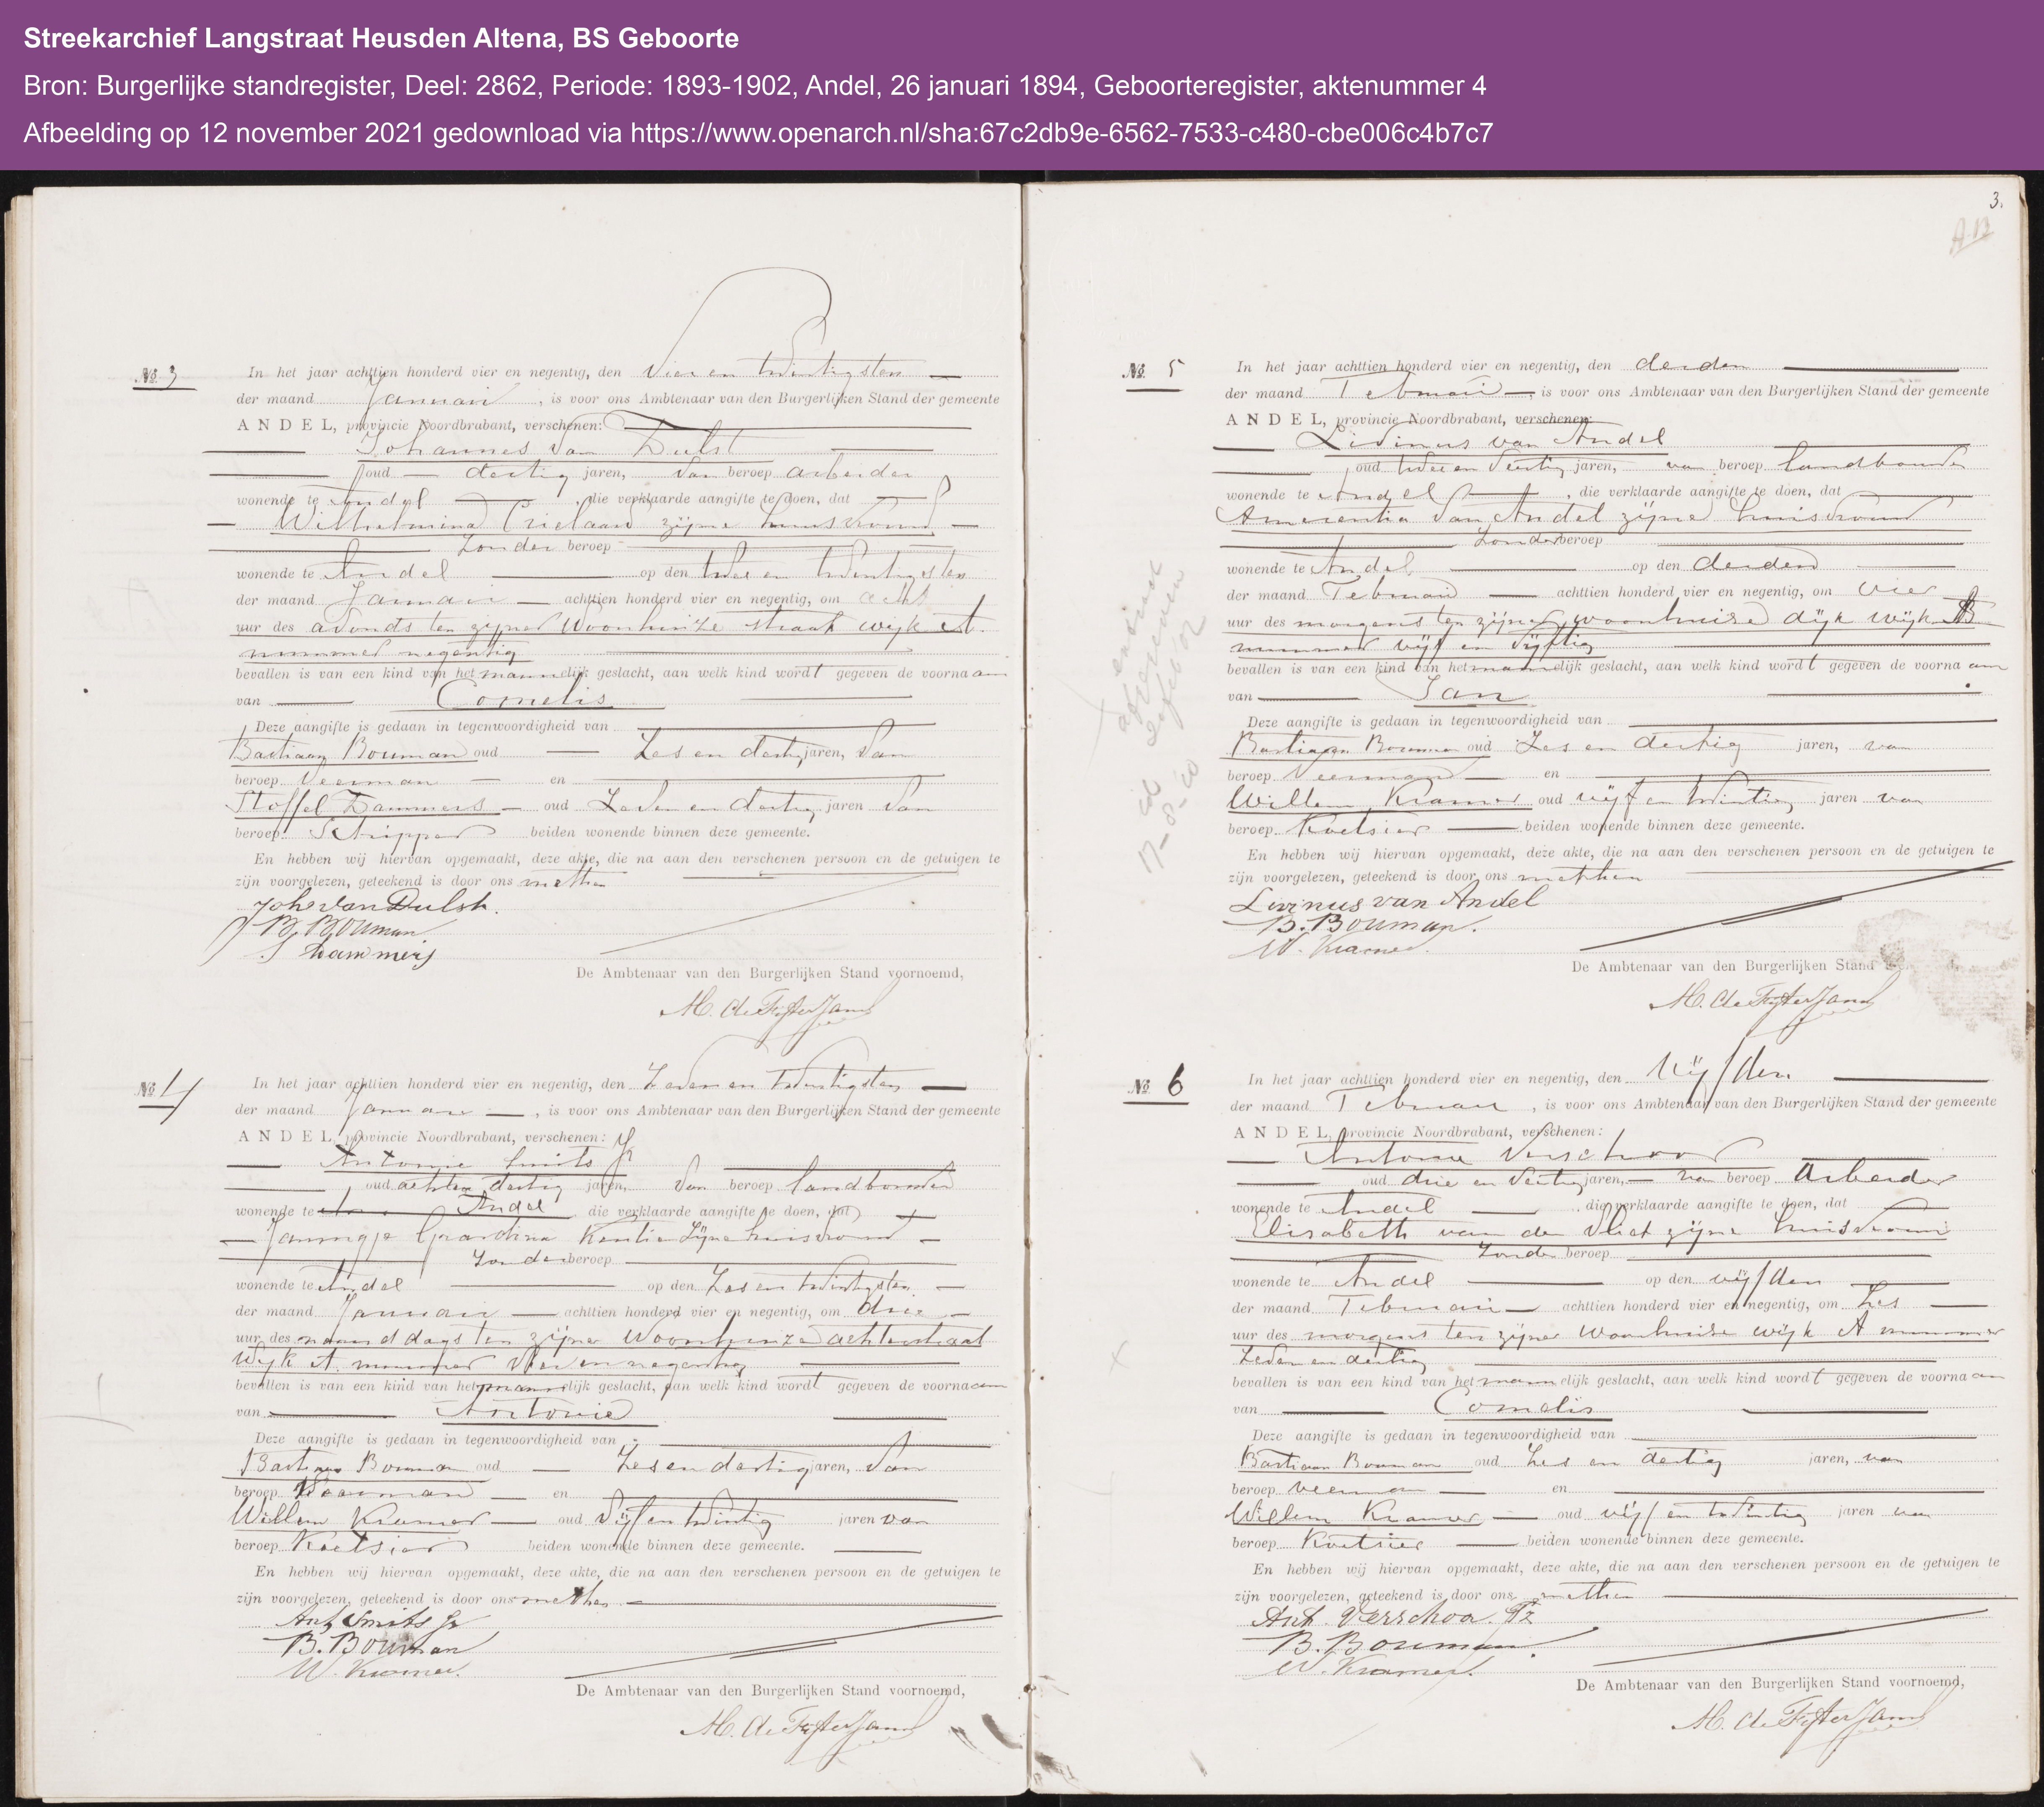 Streekarchief Langstraat Heusden Altena, BS Geboorte
Bron: Burgerlijke standregister, Deel: 2862, Periode: 1893-1902, Andel, 26 januari 1894, Geboorteregister, aktenummer 4
Afbeelding op 12 november 2021 gedownload via https://www.openarch.nl/sha:67c2db9e-6562-7533-c480-cbe006c4b7c7
No. 3
In het jaar achttien honderd vier en negentig, den vier en twintigsten
der maand Januari, is voor ons Ambtenaar van den Burgerlijken Stand der gemeente
ANDEL, provincie Noordbrabant, verschenen:
Johannes van Dulst
oud dertig jaren, van beroep arbeider
wonende te Andel, die verklaarde aangifte te doen, dat
Wilhelmina Crielaard zijne huisvrouw
zonder beroep
wonende te Andel op den twee en twintigsten
der maand Januari achttien honderd vier en negentig, om acht
uur des avonds ten zijner woonhuize straat wijk A
nummer negentig
bevallen is van een kind van het mannelijk geslacht, aan welk kind wordt gegeven de voornaam
van Cornelis
Deze aangifte is gedaan in tegenwoordigheid van
Bastiaan Bouman oud zes en dertig jaren, van
beroep veerman en
Stoffel Dammers oud zeven en dertig jaren van
beroep Schipper beiden wonende binnen deze gemeente.
En hebben wij hiervan opgemaakt, deze akte, die na aan den verschenen persoon en de getuigen te
zijn voorgelezen, geteekend is door ons met hen
Johs van Dulst.
B. Bouman
S Dammers
De Ambtenaar van den Burgerlijken Stand voornoemd,
M. de Fijter Jann
No. 4
In het jaar achttien honderd vier en negentig, den zeven en twintigsten
der maand Januari, is voor ons Ambtenaar van den Burgerlijken Stand der gemeente
ANDEL, provincie Noordbrabant, verschenen:
Antonie Smits Jr
oud acht en dertig jaren, van beroep landbouwer
wonende te Andel die verklaarde aangifte te doen, dat
Jannigje Gerardina zijne huisvrouw
zonder beroep
wonende te Andel op den zes en twintigsten
der maand Januari achttien honderd vier en negentig, om drie
uur des namiddags ten zijner woonhuize achterstraat
wijk A nummer vier en negentig
bevallen is van een kind van het mannelijk geslacht, aan welk kind wordt gegeven de voornaam
van Antonie
Deze aangifte is gedaan in tegenwoordigheid van
Bastiaan Bouman oud zes en dertig jaren, van
beroep Veerman en
Willem Kramer oud vijf en twintig jaren van
beroep Koetsier beiden wonende binnen deze gemeente.
En hebben wij hiervan opgemaakt, deze akte, die na aan den verschenen persoon en de getuigen te
zijn voorgelezen, geteekend is door ons met hen
Ant Smits Jr
B. Bouman
W. Kramer.
De Ambtenaar van den Burgerlijken Stand voornoemd,
M. de Fijter Jann
3.
No. 5
In het jaar achttien honderd vier en negentig, den derden
der maand Februari, is voor ons Ambtenaar van den Burgerlijken Stand der gemeente
ANDEL, provincie Noordbrabant, verschenen:
Livinus van Andel
oud twee en veertig jaren, van beroep landbouwer
wonende te Andel, die verklaarde aangifte te doen, dat
Amerentia van Andel zijne huisvrouw
zonder beroep
wonende te Andel op den derden
der maand Februari achttien honderd vier en negentig, om vier
uur des morgens ten zijner woonhuize dijk wijk B
nummer vijf en vijftig
bevallen is van een kind van het mannelijk geslacht, aan welk kind wordt gegeven de voornaam
van Jan
Deze aangifte is gedaan in tegenwoordigheid van
Bastiaan Bouman oud zes en dertig jaren, van
beroep Veerman en
Willem Kramer oud vijf en twintig jaren van
beroep Koetsier beiden wonende binnen deze gemeente.
En hebben wij hiervan opgemaakt, deze akte, die na aan den verschenen persoon en de getuigen te
zijn voorgelezen, geteekend is door ons met hen
Livinus van Andel
B. Bouman.
W. Kramer.
De Ambtenaar van den Burgerlijken Stand
M. de Fijter Jann
No. 6
In het jaar achttien honderd vier en negentig, den vijfden
der maand Februari, is voor ons Ambtenaar van den Burgerlijken Stand der gemeente
ANDEL, provincie Noordbrabant, verschenen:
Antonie Verschoor
oud drie en veertig jaren, van beroep Arbeider
wonende te Andel die verklaarde aangifte te doen, dat
Elisabeth van der Vliet zijne huisvrouw
zonder beroep
wonende te Andel op den vijfden
der maand Februari achttien honderd vier en negentig, om zes
uur des morgens ten zijner woonhuize wijk A nummer
zeven en dertig
bevallen is van een kind van het mannelijk geslacht, aan welk kind wordt gegeven de voornaam
van Cornelis
Deze aangifte is gedaan in tegenwoordigheid van
Bastiaan Bouman oud zes en dertig jaren, van
beroep veerman en
Willem Kramer oud vijf en twintig jaren van
beroep Koetsier beiden wonende binnen deze gemeente.
En hebben wij hiervan opgemaakt, deze akte, die na aan den verschenen persoon en de getuigen te
zijn voorgelezen, geteekend is door ons met hen
Ant. Verschoor Tz
B. Bouman.
W. Kramer.
De Ambtenaar van den Burgerlijken Stand voornoemd,
M. de Fijter Jann